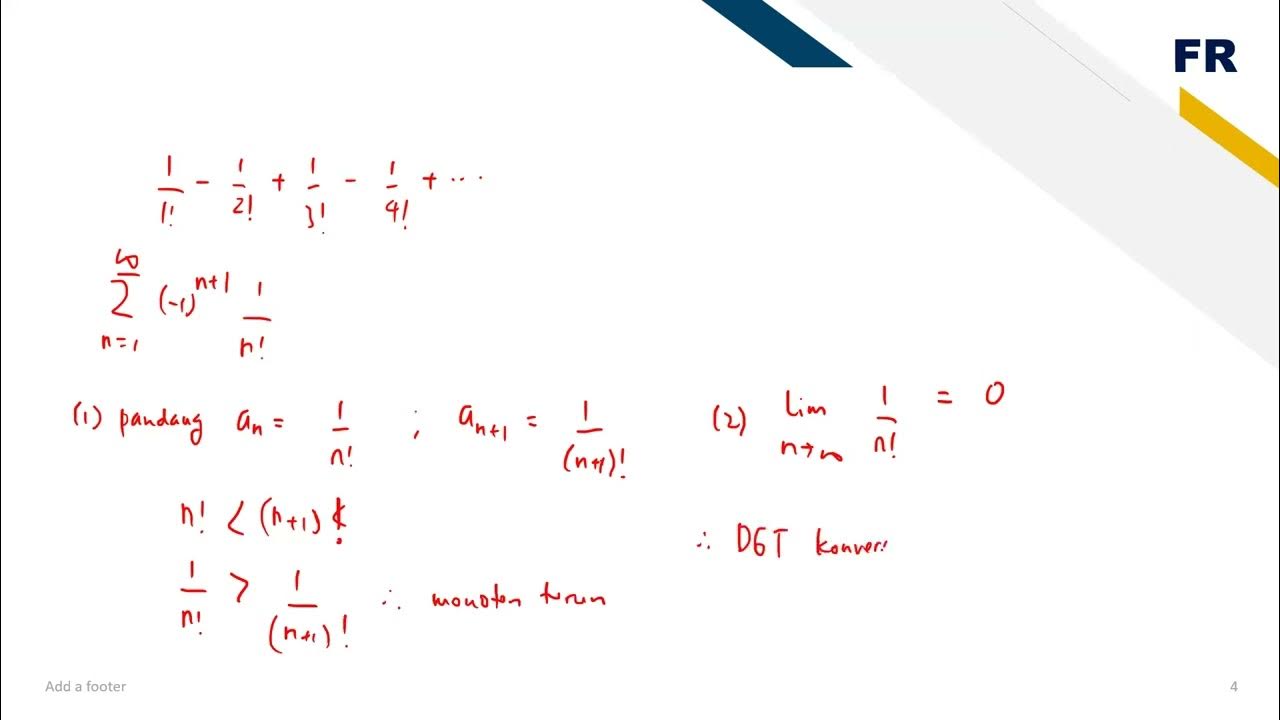 FR
1/1! - 1/2! + 1/3! - 1/4! + ...
∞ Σ n=1 (-1)^(n+1) 1/n!
(1) pandang aₙ = 1/n! ; aₙ₊₁ = 1/(n+1)!
n! < (n+1)!
1/n! > 1/(n+1)! ∴ monoton turun
(2) lim n→∞ 1/n! = 0
∴ DGT konver
Add a footer
4